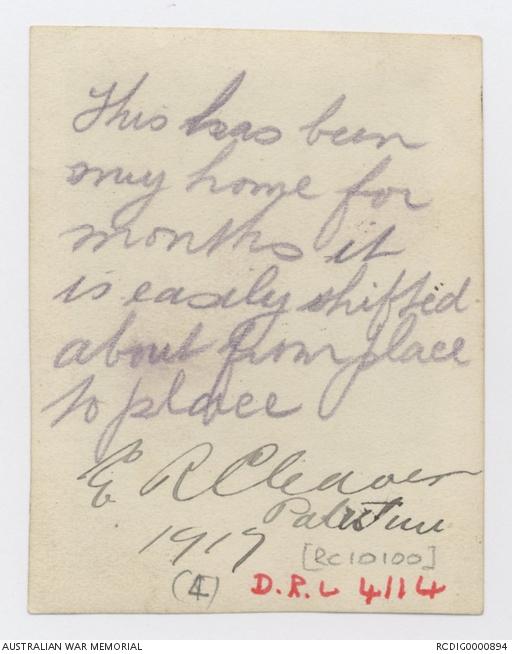 This has been
my home for
months it
is easily shifted
about from place
to place
E R Cleaver
Palestine
1917
[RC10100]
(4)
D.R.L 4114
AUSTRALIAN WAR MEMORIAL
RCDIG0000894